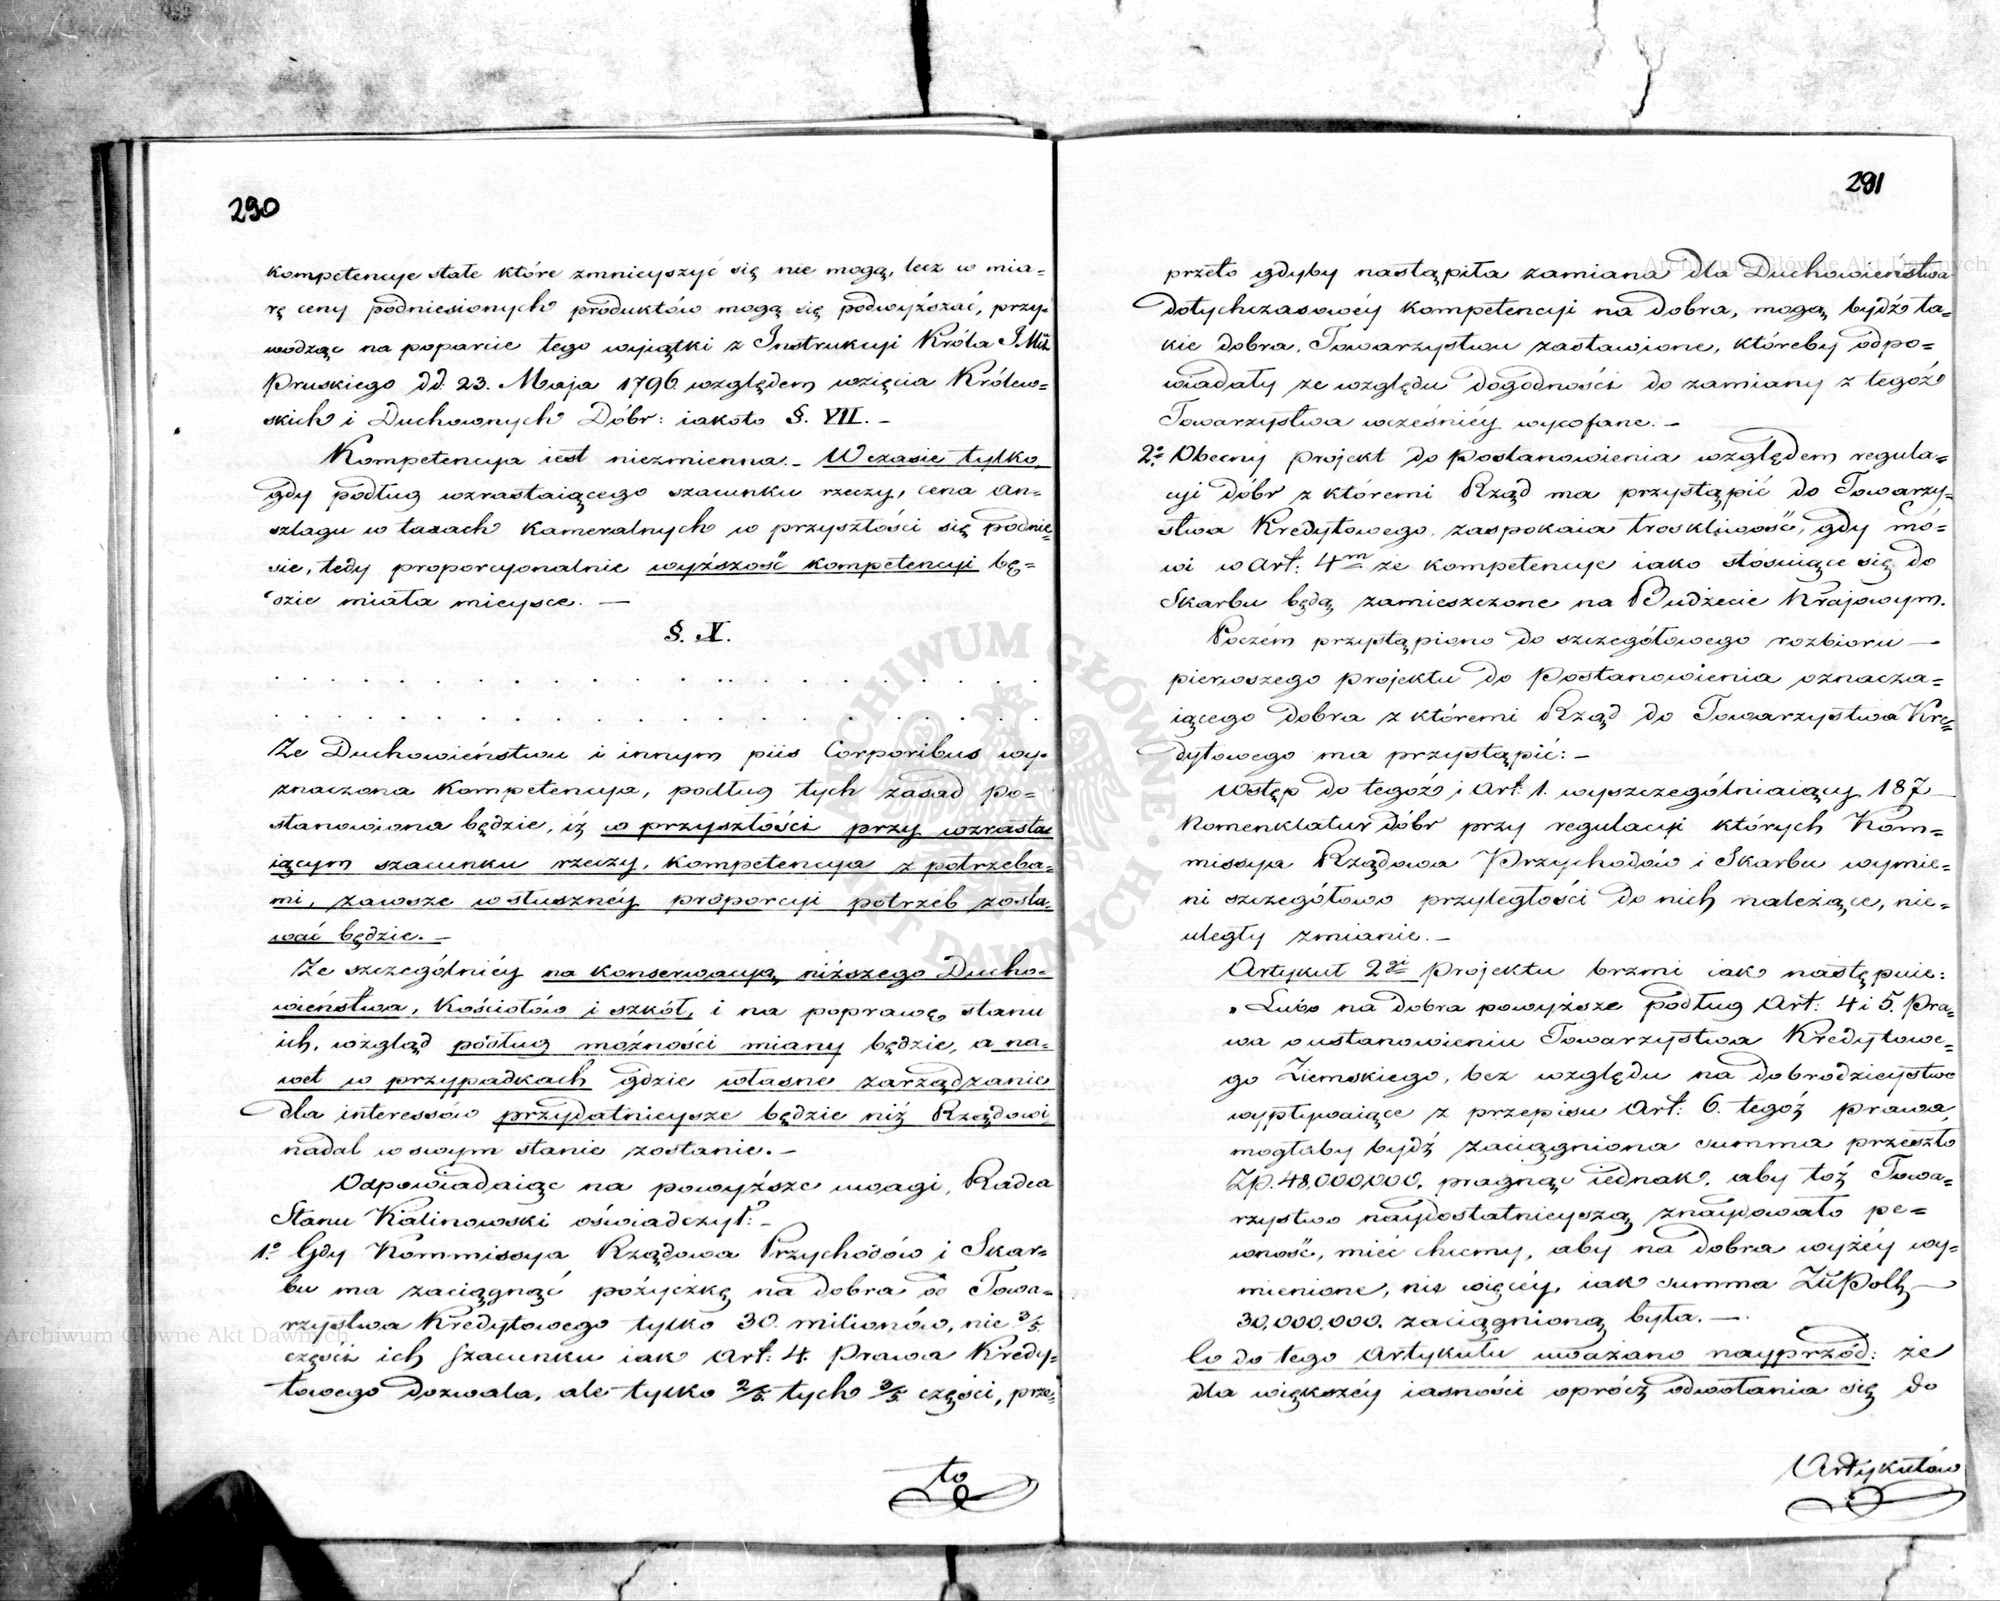 290
kompetencye stałe które zmnieyszyć się nie mogą, lecz w mia=
rę ceny podniesionych produktów mogą się podwyższać, przy=
wodząc na poparcie tego wyiątki z Instrukcyi Króla JMci
Pruskiego dd. 23. Maja 1796 względem wzięcia Królew=
skich i Duchownych Dóbr: iakoto §. VII. –
Kompetencya iest niezmienna. – W czasie tylko
gdy podług wzrastaiącego szacunku rzeczy, cena an=
szlagu w taxach kameralnych w przyszłości się podnie=
sie, tedy proporcyonalnie wyższość kompetencyi bę=
dzie miała mieysce. —
§. V.
. . . . . . . . . . . . . . . . . . .
. . . . . . . . . . . . . . . . . . .
Że Duchowieństwu i innym piis Corporibus wy=
znaczona kompetencya, podług tych zasad po=
stanowiona będzie, iż w przyszłości przy wzrasta
iącym szacunku rzeczy, kompetencya z potrzeba=
mi, zawsze w słusznéy proporcyi potrzeb zosta=
wać będzie. –
Że szczególniéy na konserwacyą niższego Ducho=
wieństwa, Kościołów i szkół, i na poprawę stanu
ich, wzgląd podług możności miany będzie, a na=
wet w przypadkach gdzie własne zarządzanie
dla interessów przydatnieysze będzie niż Rządowi,
nadal w swym stanie zostanie. –
Odpowiadaiąc na powyższe uwagi, Radca
Stanu Kalinowski oświadczył: –
1.o Gdy Kommissya Rządowa Przychodów i Skar=
bu ma zaciągnąć pożyczkę na dobra od Towa=
rzystwa Kredytowego tylko 30. milionów, nie 3/5
części ich szacunku iak Art: 4. Prawa Kredy=
towego dozwala, ale tylko 2/5 tych 3/5 części, prze=
to
291
przeto gdyby nastąpiła zamiana dla Duchowieństwa
dotychczasowéy kompetencyi na dobra, mogą bydź ta=
kie dobra, Towarzystwu zastawione, któreby odpo=
wiadały ze względu dogodności do zamiany z tegoż
Towarzystwa wcześniéy wycofane. –
2.o Obecny projekt do Postanowienia względem regula=
cyi dóbr z któremi Rząd ma przystąpić do Towarzy=
stwa Kredytowego, zaspokaia troskliwość, gdy mó=
wi w Art: 4m że kompetencye iako stósuiące się do
Skarbu będą zamieszczone na Budżecie Krajowym.
Poczém przystąpiono do szczegółowego rozbioru —
pierwszego projektu do Postanowienia oznacza=
iącego dobra z któremi Rząd do Towarzystwa Kre=
dytowego ma przystąpić: –
Wstęp do tegoż i Art: 1. wyszczególniaiący 187
Nomenklatur dóbr przy regulacyi których Kom=
missya Rządowa Przychodów i Skarbu wymie=
ni szczegółowo przyległości do nich należące, nie=
uległy zmianie. –
Artykuł 2gi Projektu brzmi iak następuie:
„Lubo na dobra powyższe podług Art: 4 i 5. Pra=
wa o ustanowieniu Towarzystwa Kredytowe=
go Ziemskiego, bez względu na dobrodzieystwo
wypływaiące z przepisu Art: 6. tegoż prawa,
mogłaby bydź zaciągniona summa przeszło
Zp. 48,000,000, pragnąc iednak, aby toż Towa=
rzystwo naydostatnieyszą znaydowało pe=
wność, mieć chcemy, aby na dobra wyżéy wy=
mienione, nie więcéy, iak summa Złł Polh —
30,000,000. zaciągnioną była. —
Co do tego Artykułu uważano nayprzód: że
dla większéy iasności oprócz odwołania się do
Artykułów